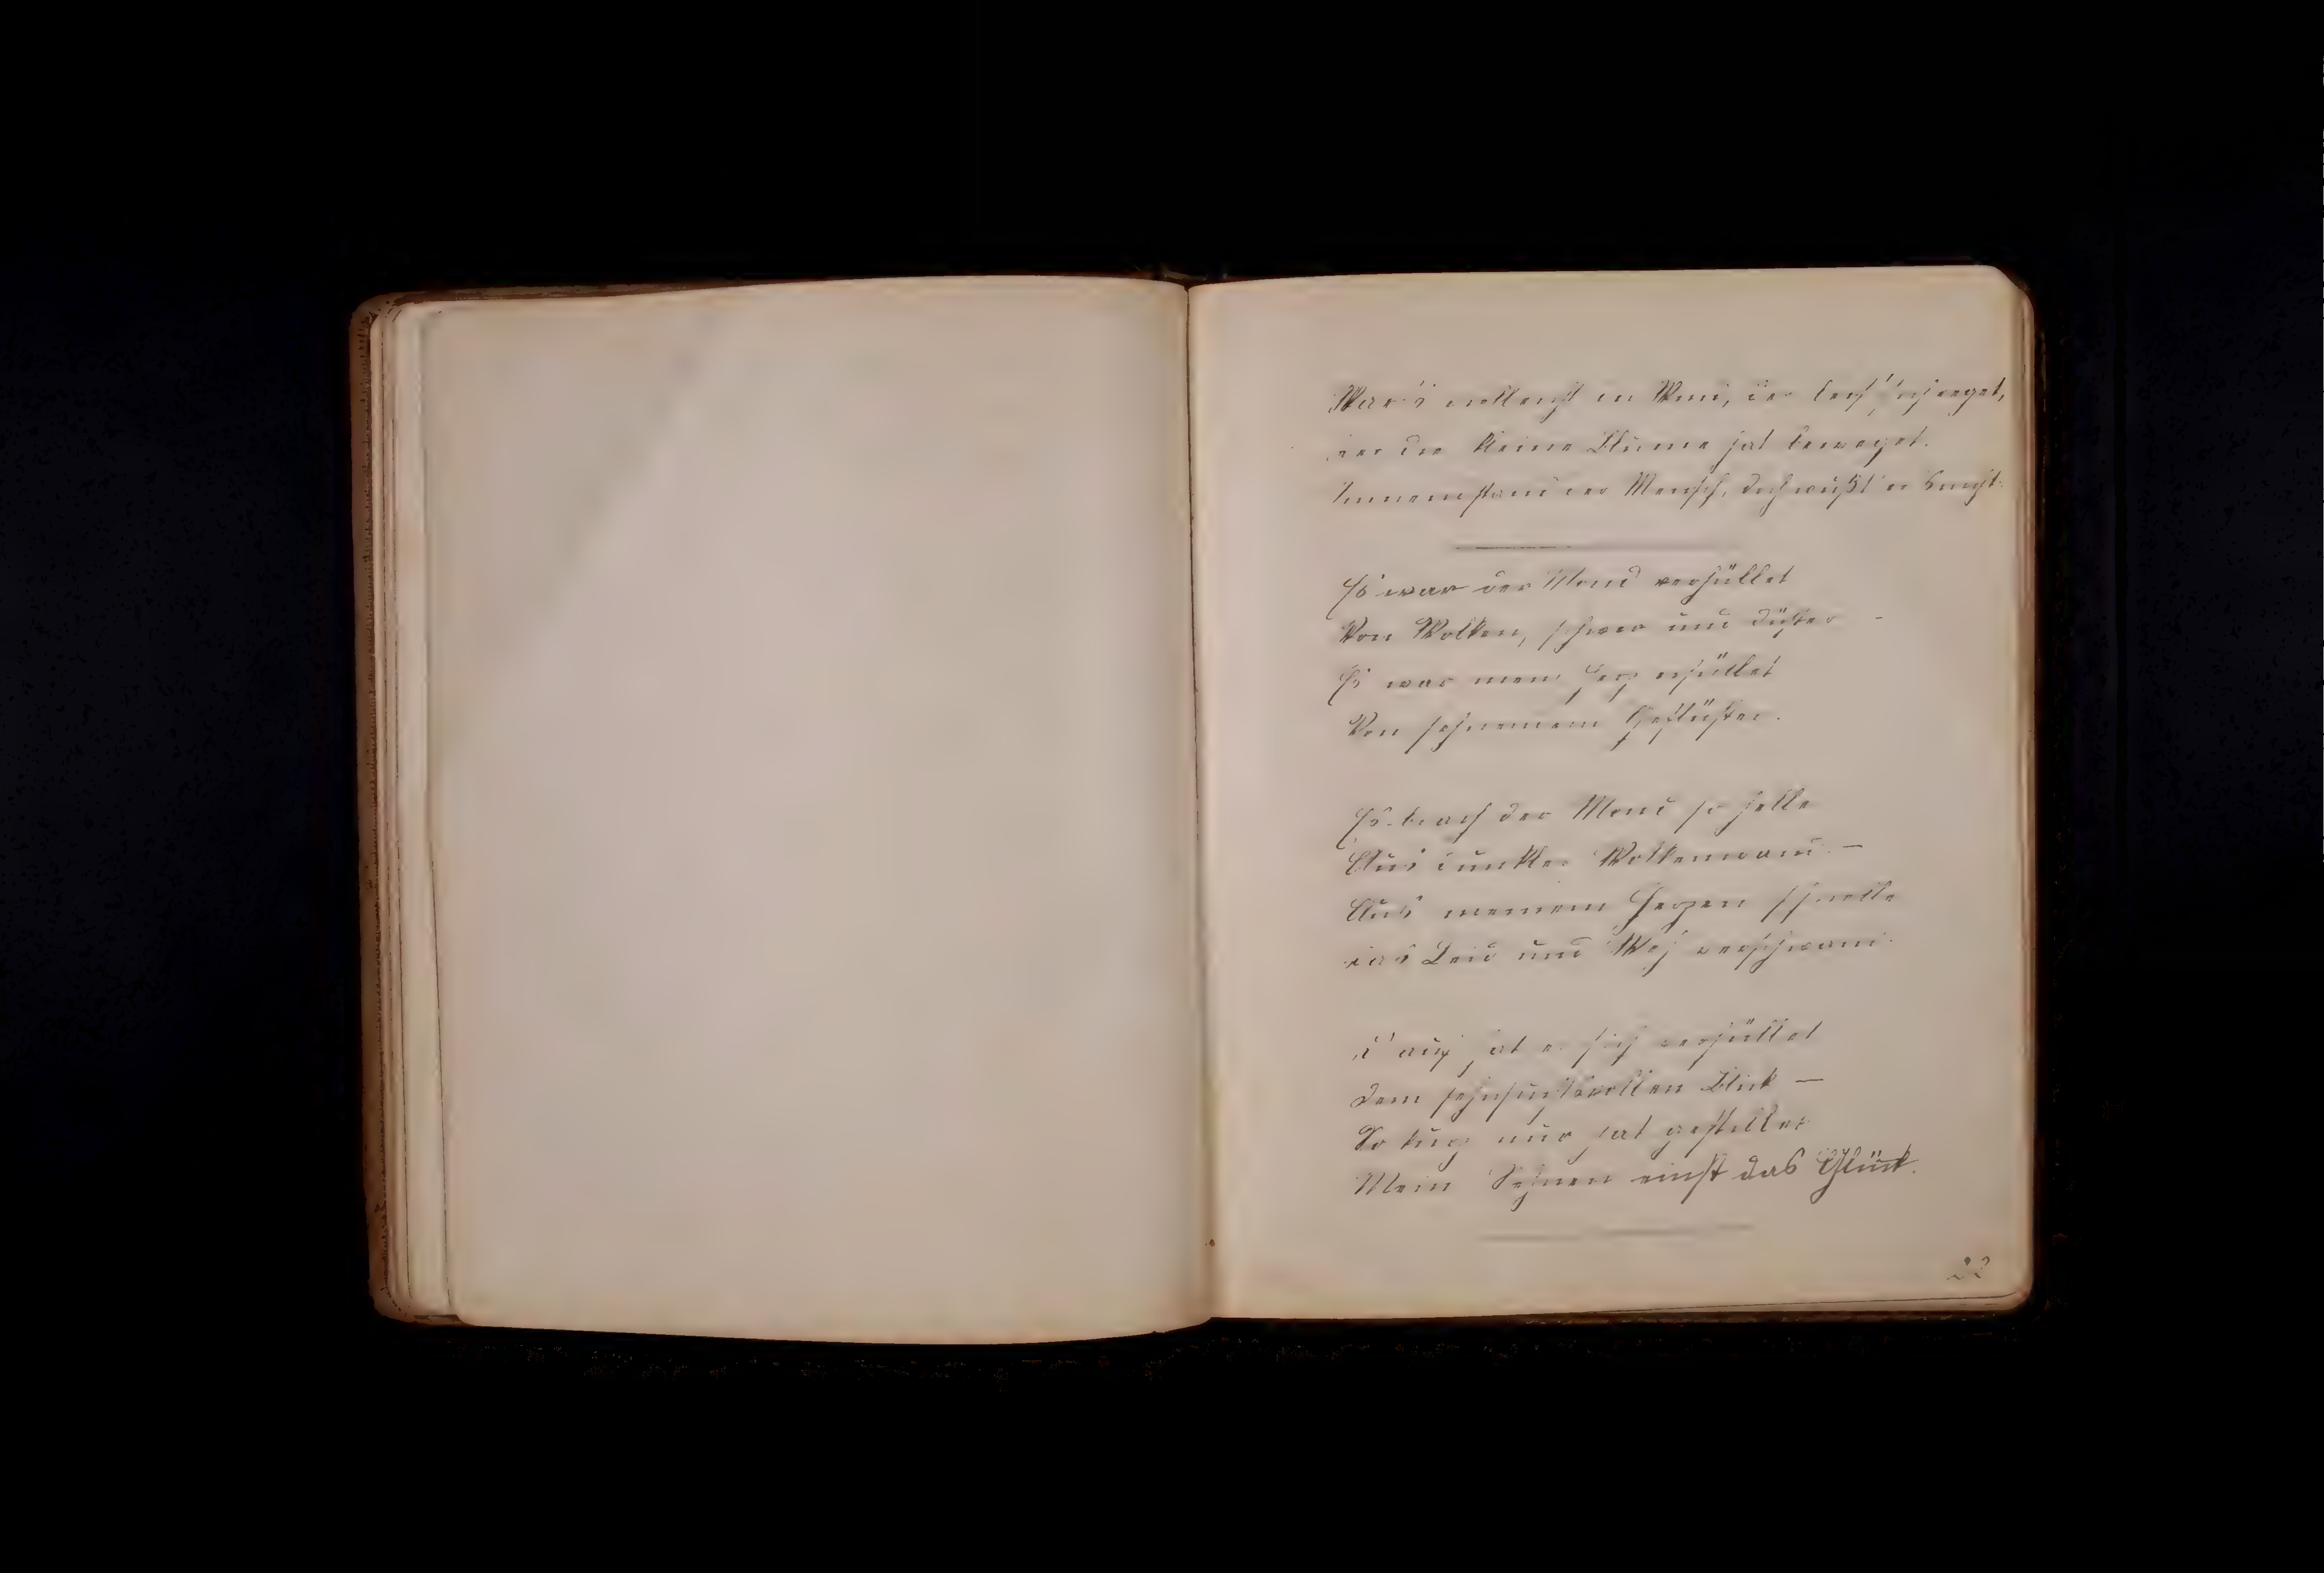 War's vielleicht ein Wind, der leis' sich reget,
der die kleine Blume hat beweget.
stand der Mensch, doch wußt' er's nicht.
Es war der Mond verhüllet
Von Wolken, schwer und düster –
Es war mein Herz erfüllet
Von sehnendem Geflüster.
Es brach der Mond so helle
Aus dunkler Wolkenwand –
Aus meinem Herzen schnelle
das Leid und Weh verschwand.
hat er sich verhüllet
dem sehnsuchtsvollen Blick –
So kurz nur hat gestillet
Mein Sehnen einst das Glück.
22